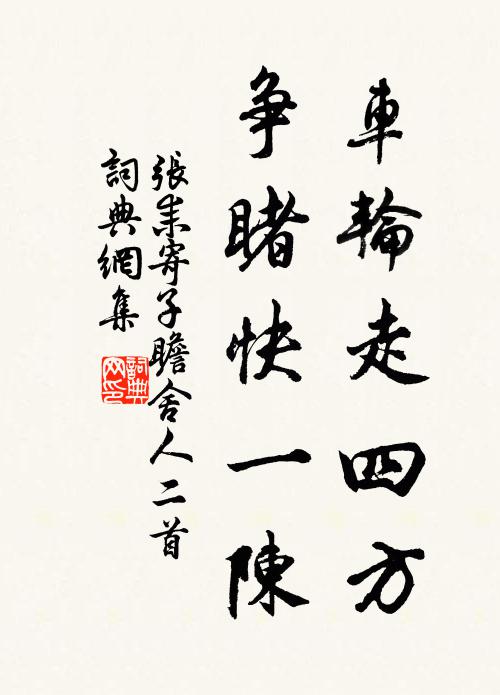 車輪走四方
爭睹快一陳
張耒寄子瞻舍人二首
詞典網集
詞典網印